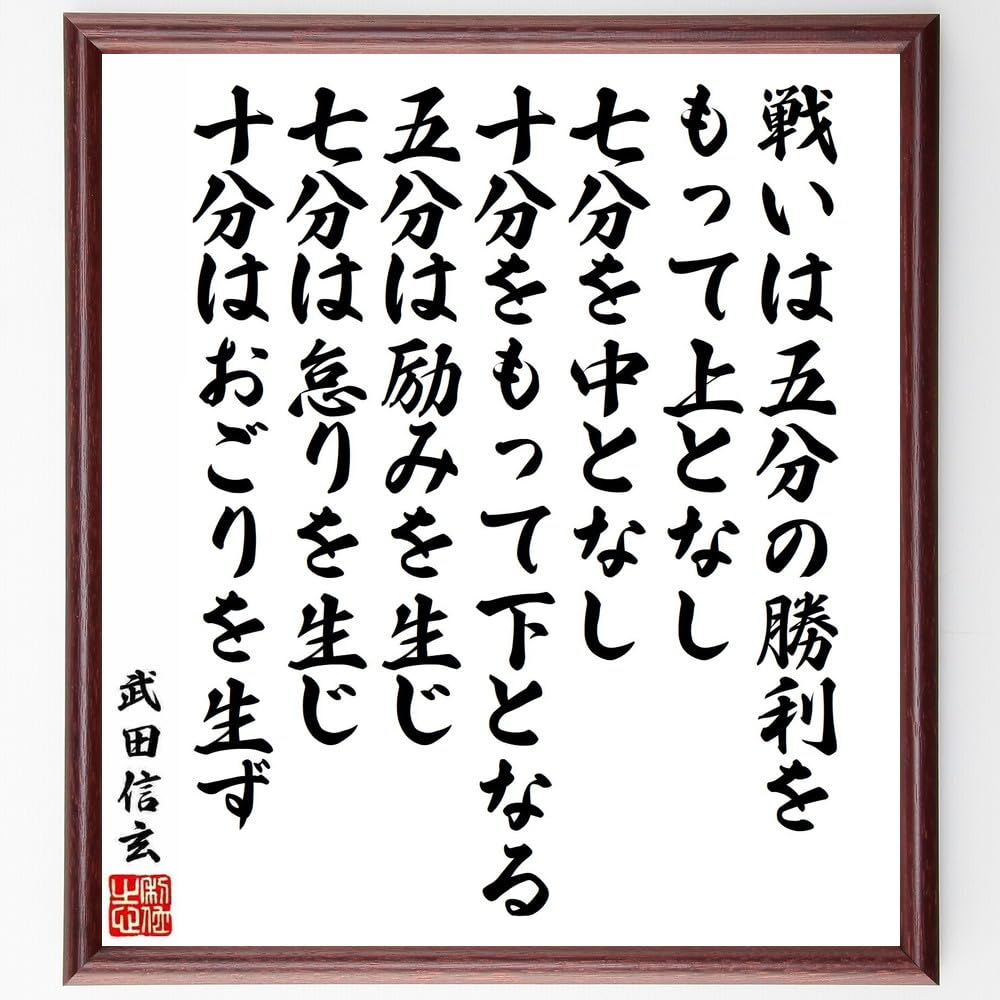 戦いは五分の勝利を
もって上となし
七分を中となし
十分をもって下となる
五分は励みを生じ
七分は怠りを生じ
十分はおごりを生ず
武田信玄